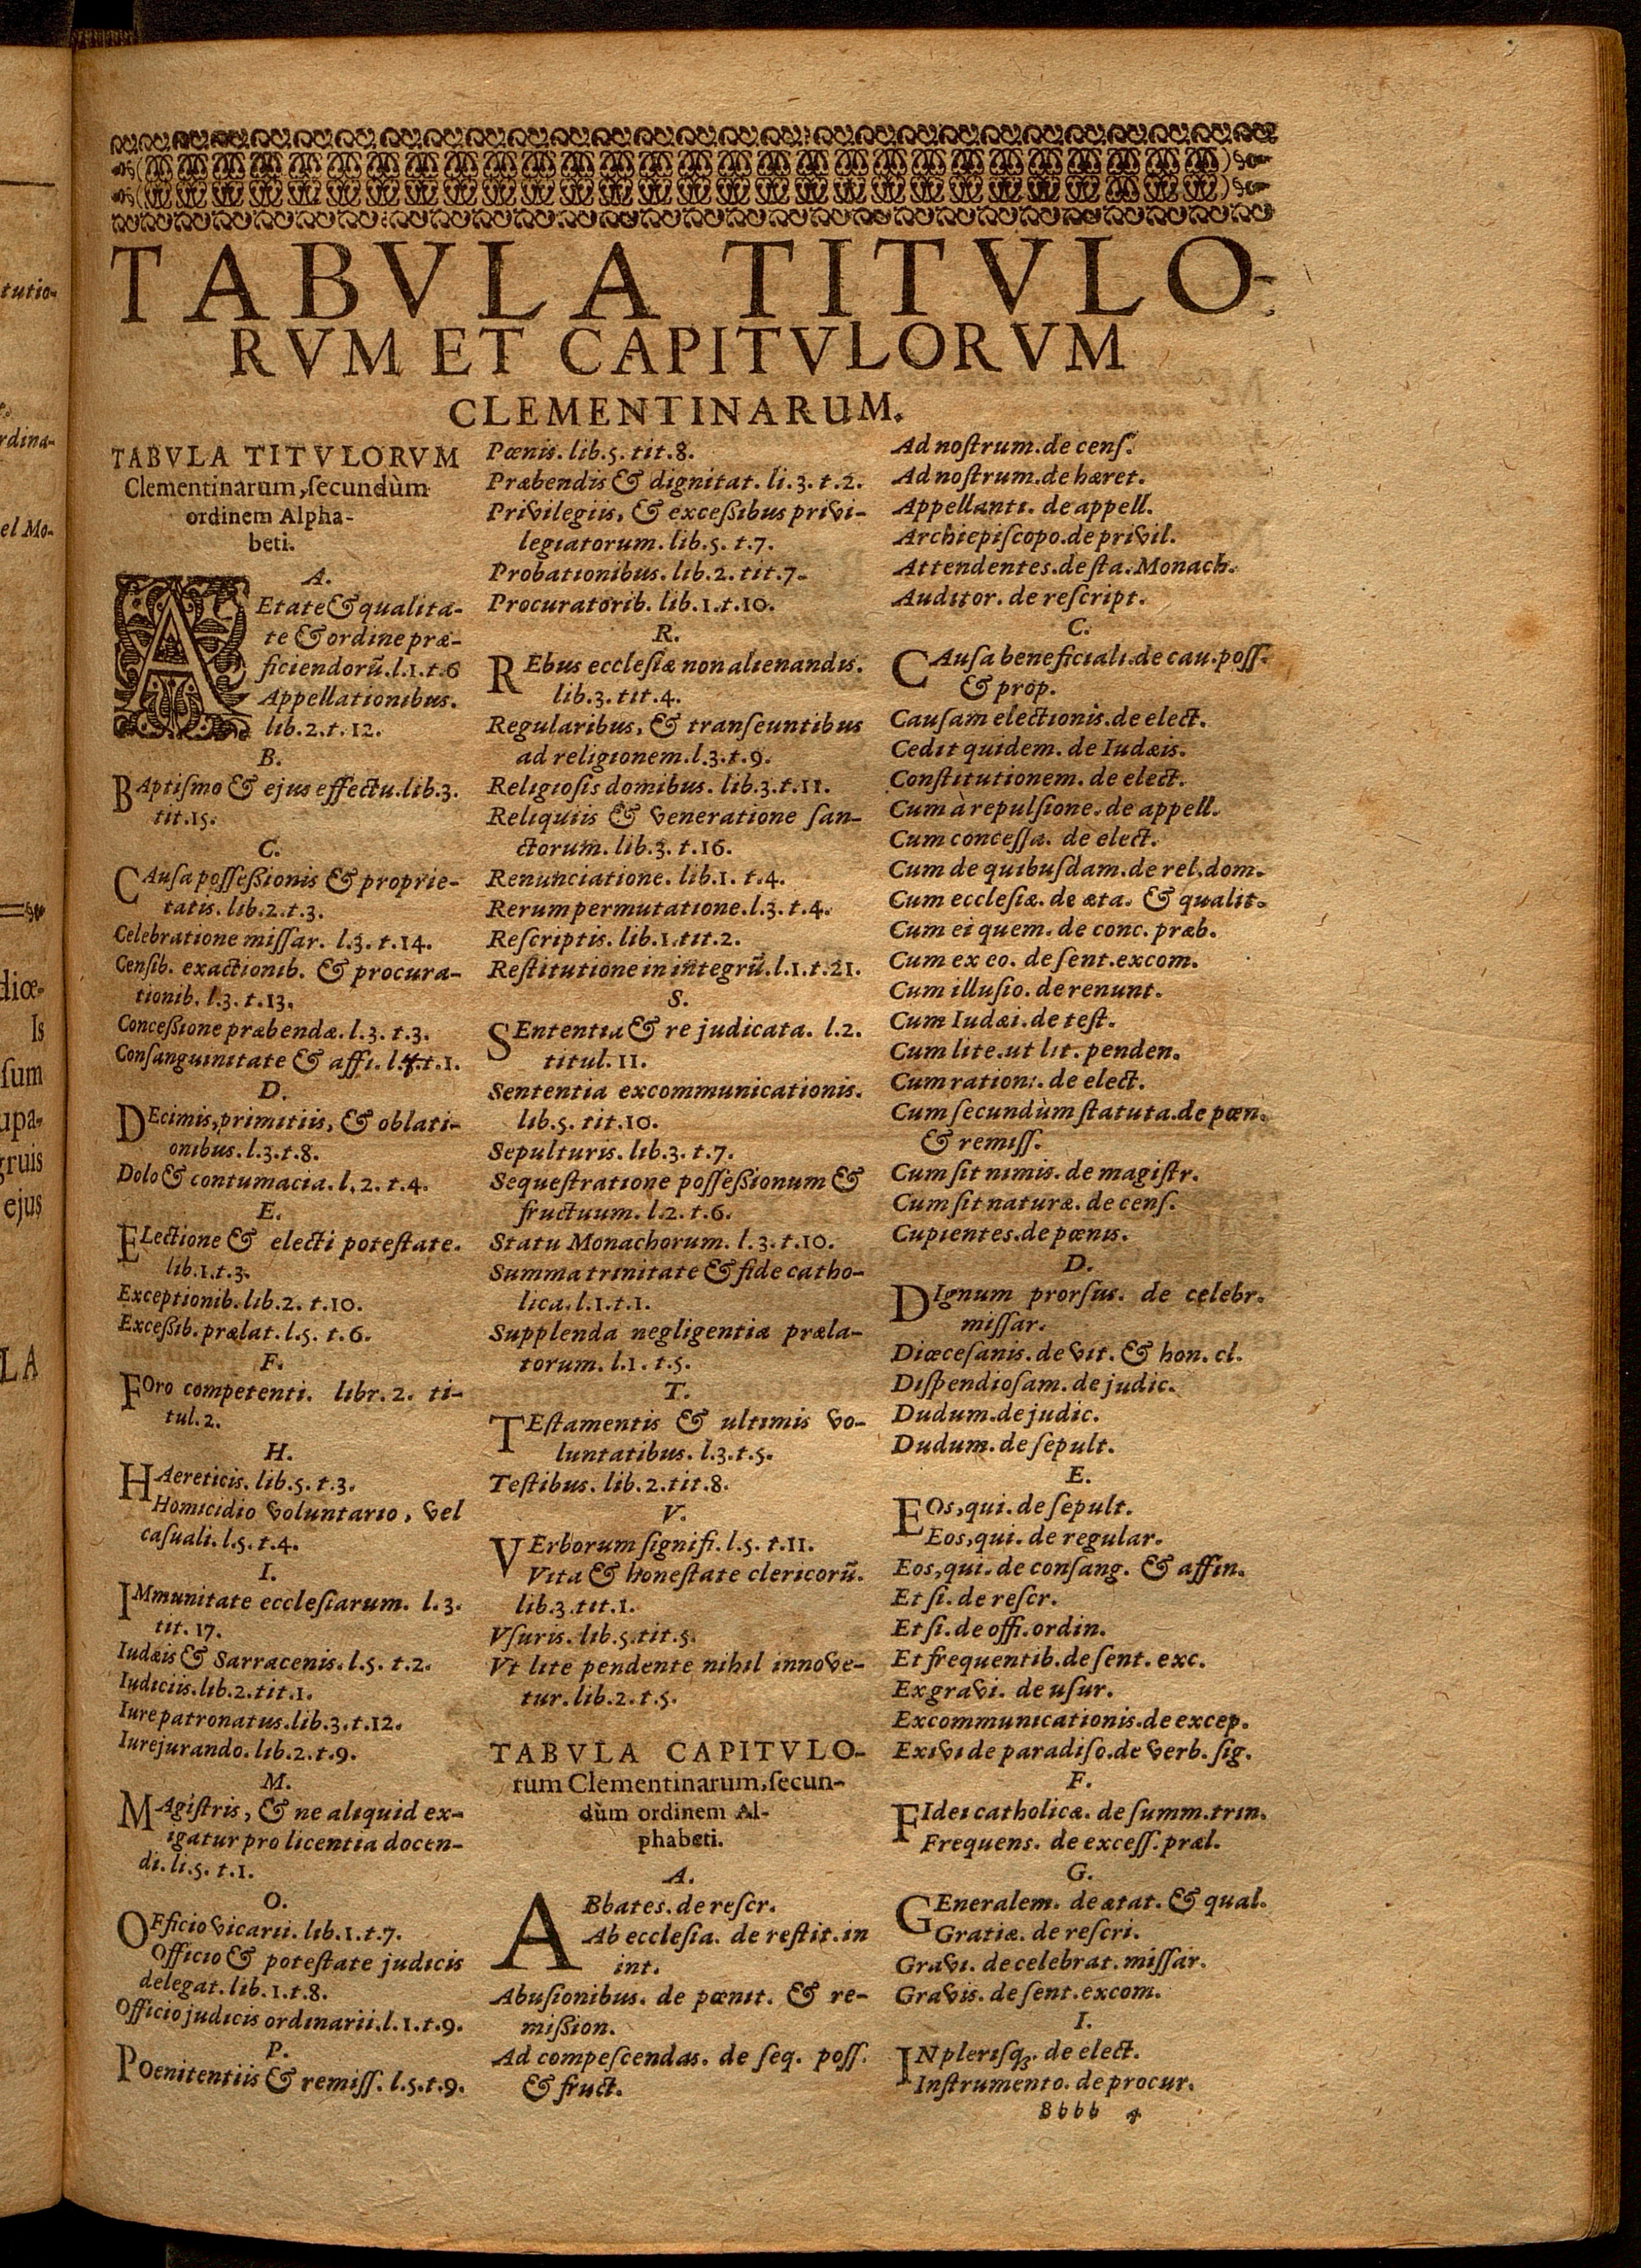 TABVLA TITVLO-
RVM ET CAPITVLORVM
CLEMENTINARUM.
TABVLA TITVLORVM
Clementinarum, ſecundùm
ordinem Alpha-
beti.
A.
AEtate & qualita-
te & ordine præ-
ficiendorũ. l.1.t.6
Appellationibus.
lib.2.t.12.
B.
BAptiſmo & ejus effectu. lib.3.
tit.15.
C.
CAuſa poſſeßionis & proprie-
tatis. lib.2.t.3.
Celebratione miſſar. l.3. t.14.
Cenſib. exactionib. & procura-
tionib. l.3. t.13.
Conceßione præbendæ. l.3. t.3.
Conſanguinitate & affi. l.4.t.1.
D.
DEcimis, primitiis, & oblati-
onibus. l.3.t.8.
Dolo & contumacia. l.2. t.4.
E.
ELectione & electi poteſtate.
lib.1.t.3.
Exceptionib. lib.2. t.10.
Exceßib. prælat. l.5. t.6.
F.
FOro competenti. libr. 2. ti-
tul.2.
H.
HAereticis. lib.5. t.3.
Homicidio voluntario, vel
caſuali. l.5. t.4.
I.
IMmunitate eccleſiarum. l.3.
tit. 17.
Iudæis & Sarracenis. l.5. t.2.
Iudiciis. lib.2. tit.1.
Iure patronatus. lib.3. t.12.
Iurejurando. lib.2. t.9.
M.
MAgiſtris, & ne aliquid ex-
igatur pro licentia docen-
di. li.5. t.1.
O.
OFficio vicarii. lib.1. t.7.
Officio & poteſtate judicis
delegat. lib.1. t.8.
Officio judicis ordinarii. l.1. t.9.
P.
POenitentiis & remiſſ. l.5.t.9.
Pœnis. lib.5. tit.8.
Præbendis & dignitat. li.3. t.2.
Privilegiis, & exceßibus privi-
legiatorum. lib.5. t.7.
Probationibus. lib.2. tit.7.
Procuratorib. lib.1.t.10.
R.
REbus eccleſiæ non alienandis.
lib.3. tit.4.
Regularibus, & tranſeuntibus
ad religionem. l.3.t.9.
Religioſis domibus. lib.3.t.11.
Reliquiis & veneratione ſan-
ctorum. lib.3. t.16.
Renunciatione. lib.1. t.4.
Rerum permutatione. l.3. t.4.
Reſcriptis. lib.1. tit.2.
Reſtitutione in integrũ. l.1.t.21.
S.
SEntentia & re judicata. l.2.
titul.11.
Sententia excommunicationis.
lib.5. tit.10.
Sepulturis. lib.3. t.7.
Sequeſtratione poſſeßionum &
fructuum. l.2. t.6.
Statu Monachorum. l.3. t.10.
Summa trinitate & fide catho-
lica. l.1. t.1.
Supplenda negligentia præla-
torum. l.1. t.5.
T.
TEſtamentis & ultimis vo-
luntatibus. l.3.t.5.
Teſtibus. lib.2. tit.8.
V.
VErborum ſignifi. l.5. t.11.
Vita & honeſtate clericorũ.
lib.3. tit.1.
Vſuris. lib.5. tit.5.
Vt lite pendente nihil innove-
tur. lib.2. t.5.
TABVLA CAPITVLO-
rum Clementinarum, ſecun-
dùm ordinem Al-
phabeti.
A.
ABbates. de reſcr.
Ab eccleſia. de reſtit. in
int.
Abuſionibus. de pœnit. & re-
mißion.
Ad compeſcendas. de ſeq. poſſ.
& fruct.
Ad noſtrum. de cenſ.
Ad noſtrum. de hæret.
Appellanti. de appell.
Archiepiſcopo. de privil.
Attendentes. de ſta. Monach.
Auditor. de reſcript.
C.
CAuſa beneficiali. de cau. poſſ.
& prop.
Cauſam electionis. de elect.
Cedit quidem. de Iudæis.
Conſtitutionem. de elect.
Cum à repulſione. de appell.
Cum conceſſa. de elect.
Cum de quibuſdam. de rel. dom.
Cum eccleſiæ. de æta. & qualit.
Cum ei quem. de conc. præb.
Cum ex eo. de ſent. excom.
Cum illuſio. de renunt.
Cum Iudæi. de teſt.
Cum lite. ut lit. penden.
Cum ration:. de elect.
Cum ſecundùm ſtatuta. de pœn.
& remiſſ.
Cum ſit nimis. de magiſtr.
Cum ſit naturæ. de cenſ.
Cupientes. de pœnis.
D.
DIgnum prorſus. de celebr.
miſſar.
Diœceſanis. de vit. & hon. cl.
Diſpendioſam. de judic.
Dudum. de judic.
Dudum. de ſepult.
E.
EOs, qui. de ſepult.
Eos, qui. de regular.
Eos, qui. de conſang. & affin.
Et ſi. de reſcr.
Et ſi. de offi. ordin.
Et frequentib. de ſent. exc.
Ex gravi. de uſur.
Excommunicationis. de excep.
Exivi de paradiſo. de verb. ſig.
F.
FIdei catholicæ. de ſumm. trin.
Frequens. de exceſſ. præl.
G.
GEneralem. de ætat. & qual.
Gratiæ. de reſcri.
Gravi. de celebrat. miſſar.
Gravis. de ſent. excom.
I.
IN pleriſq;. de elect.
Inſtrumento. de procur.
Bbbb 4
tutio-
rdina-
el Mo-
diœ-
Is
ſum
upa-
gruis
ejus
LA